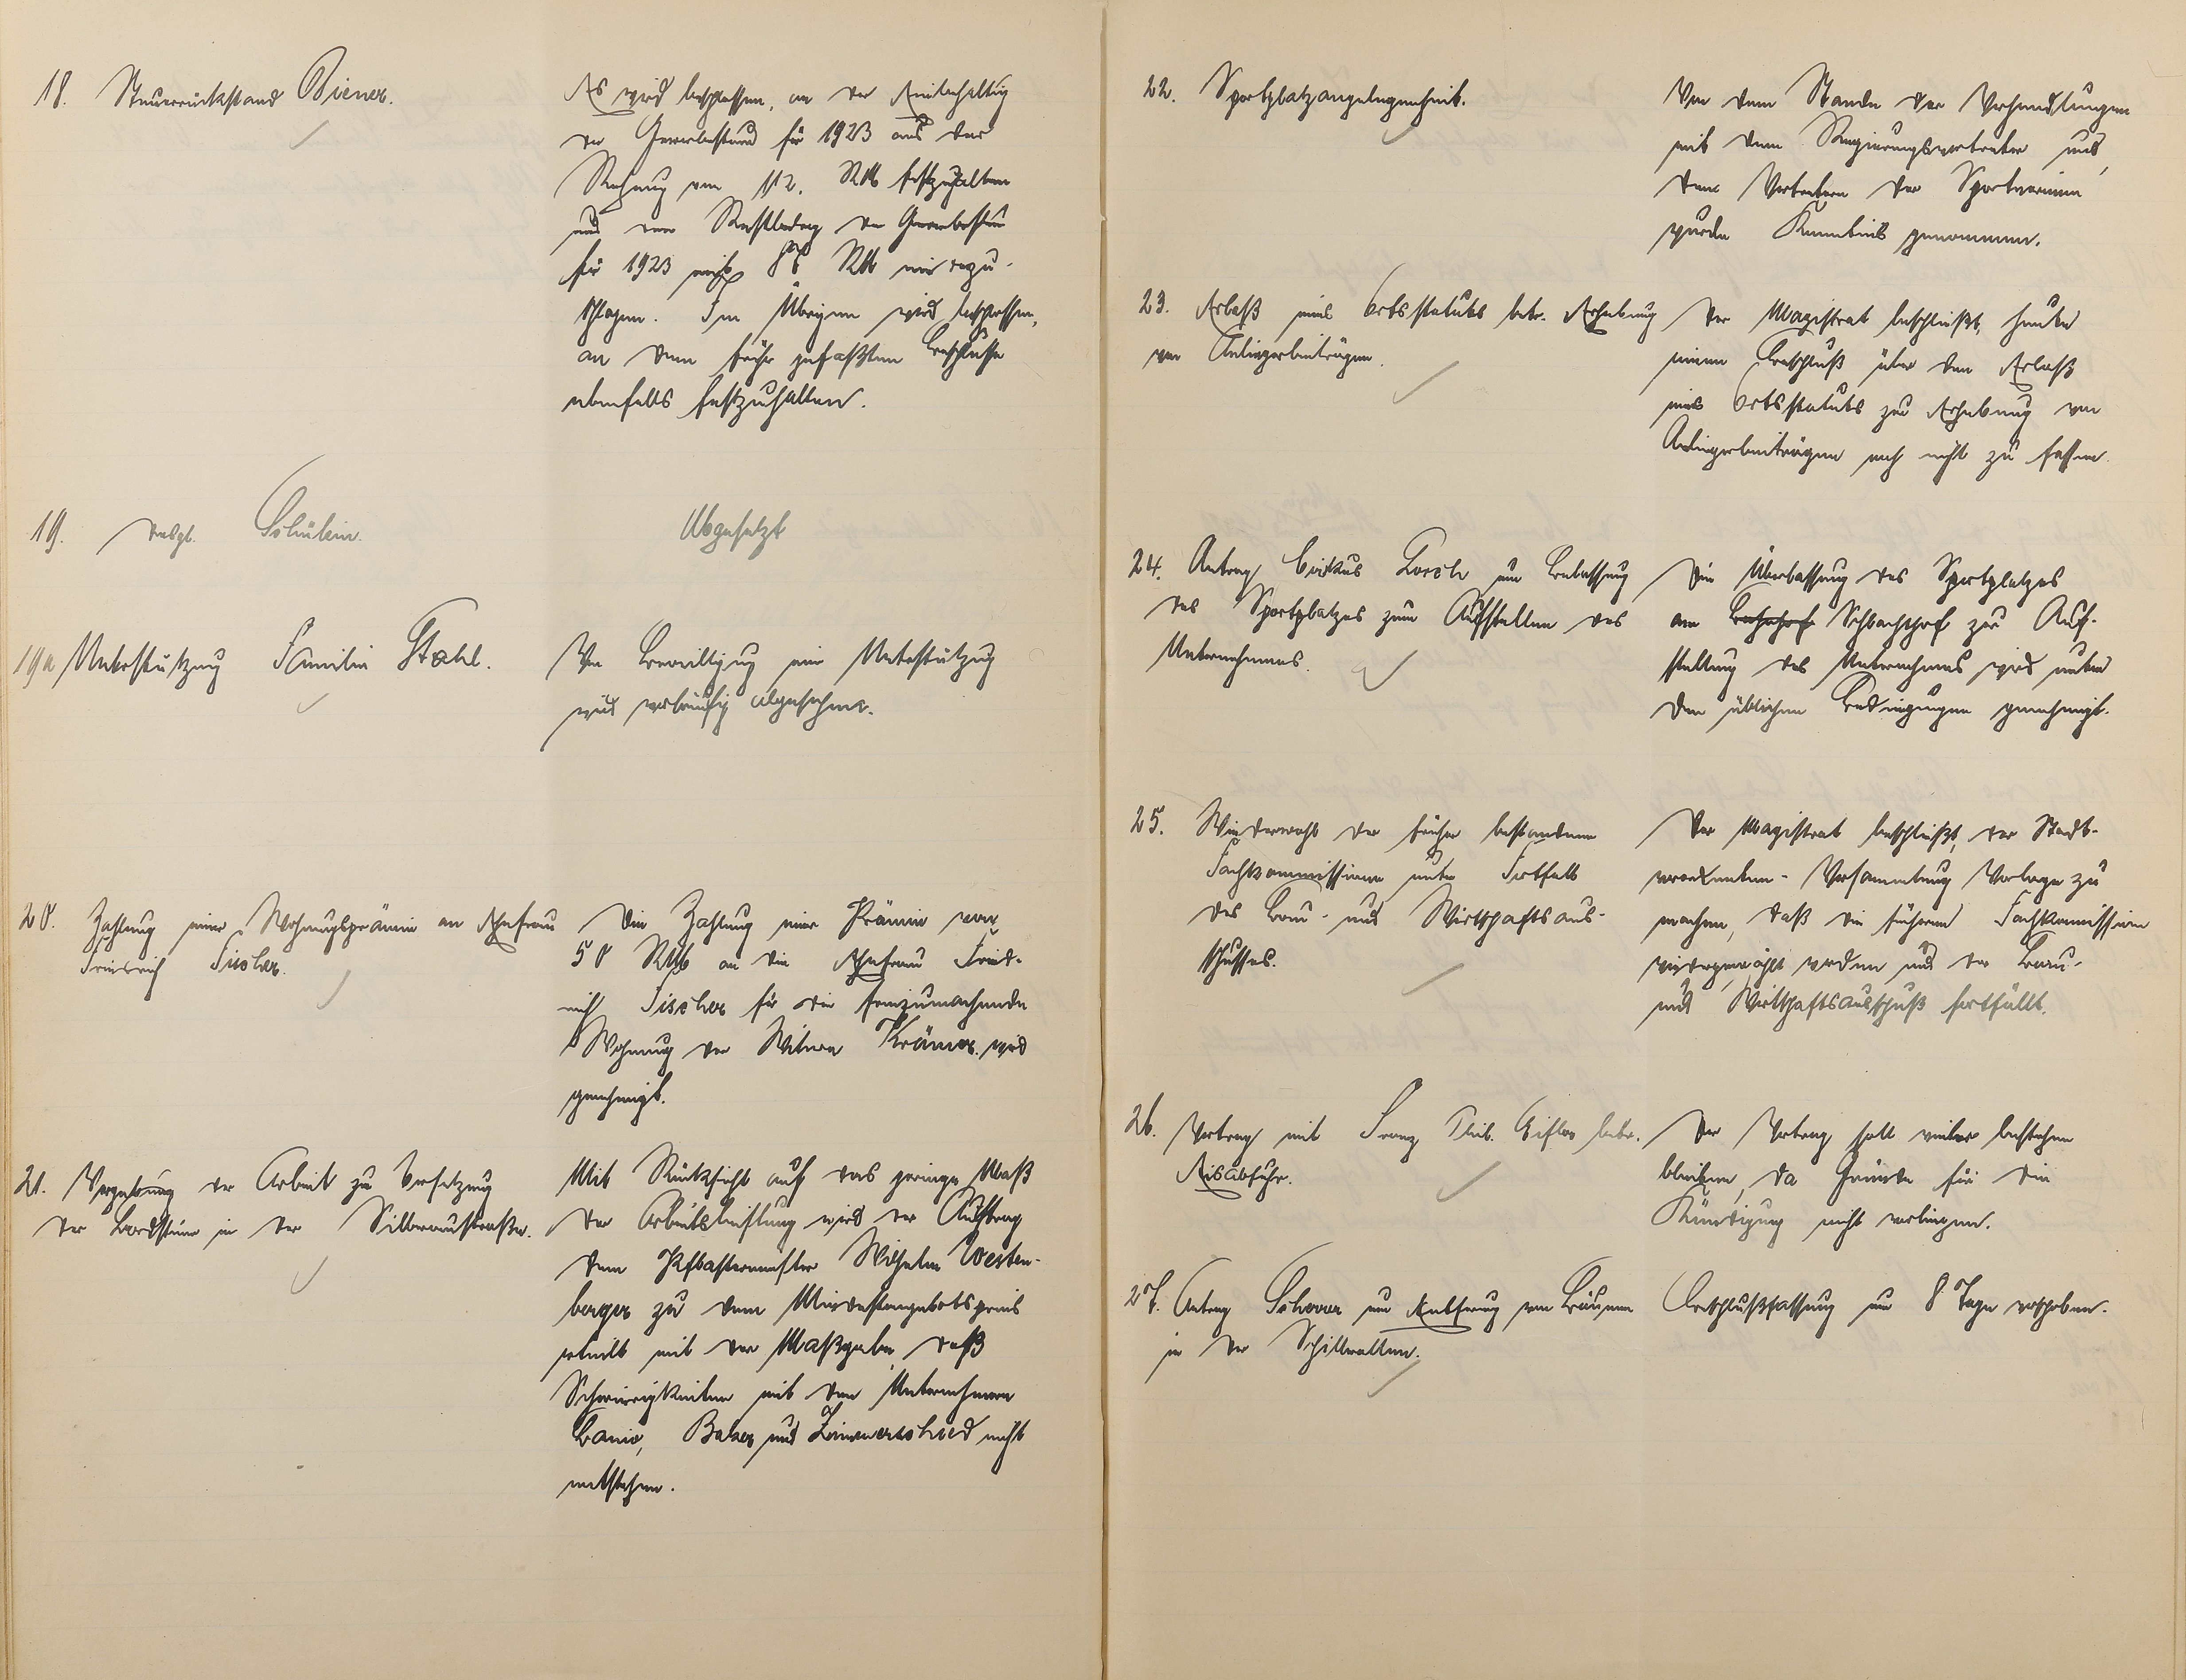 18. Steuerrückstand Biener.
Es wird beschlossen, an der Einbehaltung
der Gewerbesteuer für 1923 aus der
Rechnung von 112. RM festzuhalten
und den Restbetrag der Gewerbesteuer
für 1923 mit RM niederzu-
schlagen. Im Übrigen wird beschlossen,
an dem früher gefaßten Beschlusse
ebenfalls festzuhalten.
19. desgl. Schülein.
Abgesetzt
19a Unterstützung Familie Stahl.
Von Bewilligung einer Unterstützung
wird vorläufig abgesehen.
20. Zahlung einer Wohnungsprämie an Ehefrau
Friedrich Fischer.
Die Zahlung einer Prämie von
50 RM an die Ehefrau Fried-
rich Fischer für die freizumachende
Wohnung der Witwe Krämer wird
genehmigt.
21. Vergebung der Arbeit zu Versetzung
der Bordsteine in der Silberaustraße.
Mit Rücksicht auf das geringe Maß
der Arbeitsleistung wird der Auftrag
dem Pflastermeister Wilhelm Westen-
berger zu dem Mindestangebotspreis
erteilt mit der Maßgabe, daß
Schwierigkeiten mit den Unternehmern
Banio, Balzer und Zimmerschied nicht
entstehen.
22. Sportplatzangelegenheit.
Von dem Stande der Verhandlungen
mit dem Regierungsvertreter und
den Vertretern der Sportvereine
wurde Kenntnis genommen.
23. Erlaß eines Ortsstatuts betr. Erhebung
von Anliegerbeiträgen.
Der Magistrat beschließt, heute
einen Beschluß über den Erlaß
eines Ortsstatuts zur Erhebung von
Anliegerbeiträgen noch nicht zu fassen.
24. Antrag Cirkus Lorch um Belassung
des Sportplatzes zum Aufstellen des
Unternehmens.
Die Überlassung des Sportplatzes
am Bahnhof Schlachthof zur Auf-
stellung des Unternehmens wird unter
den üblichen Bedingungen genehmigt.
25. Wiederwahl der früher bestandenen
Fachkommissionen unter Fortfall
des Bau- und Wirtschaftsaus-
schusses.
Der Magistrat beschließt, der Stadt-
verordneten-Versammlung Vorlage zu
machen, daß die früheren Fachkommissionen
wiedergewählt werden und der Bau-
und Wirtschaftsausschuß fortfällt.
26. Vertrag mit Franz Phil. Eifler betr.
Eisabfuhr.
Der Vertrag soll weiter bestehen
bleiben, da Gründe für die
Kündigung nicht vorliegen.
27. Antrag Schorr um Entfernung von Bäumen
in der Schillerallee.
Beschlußfassung um 8 Tage verschoben.